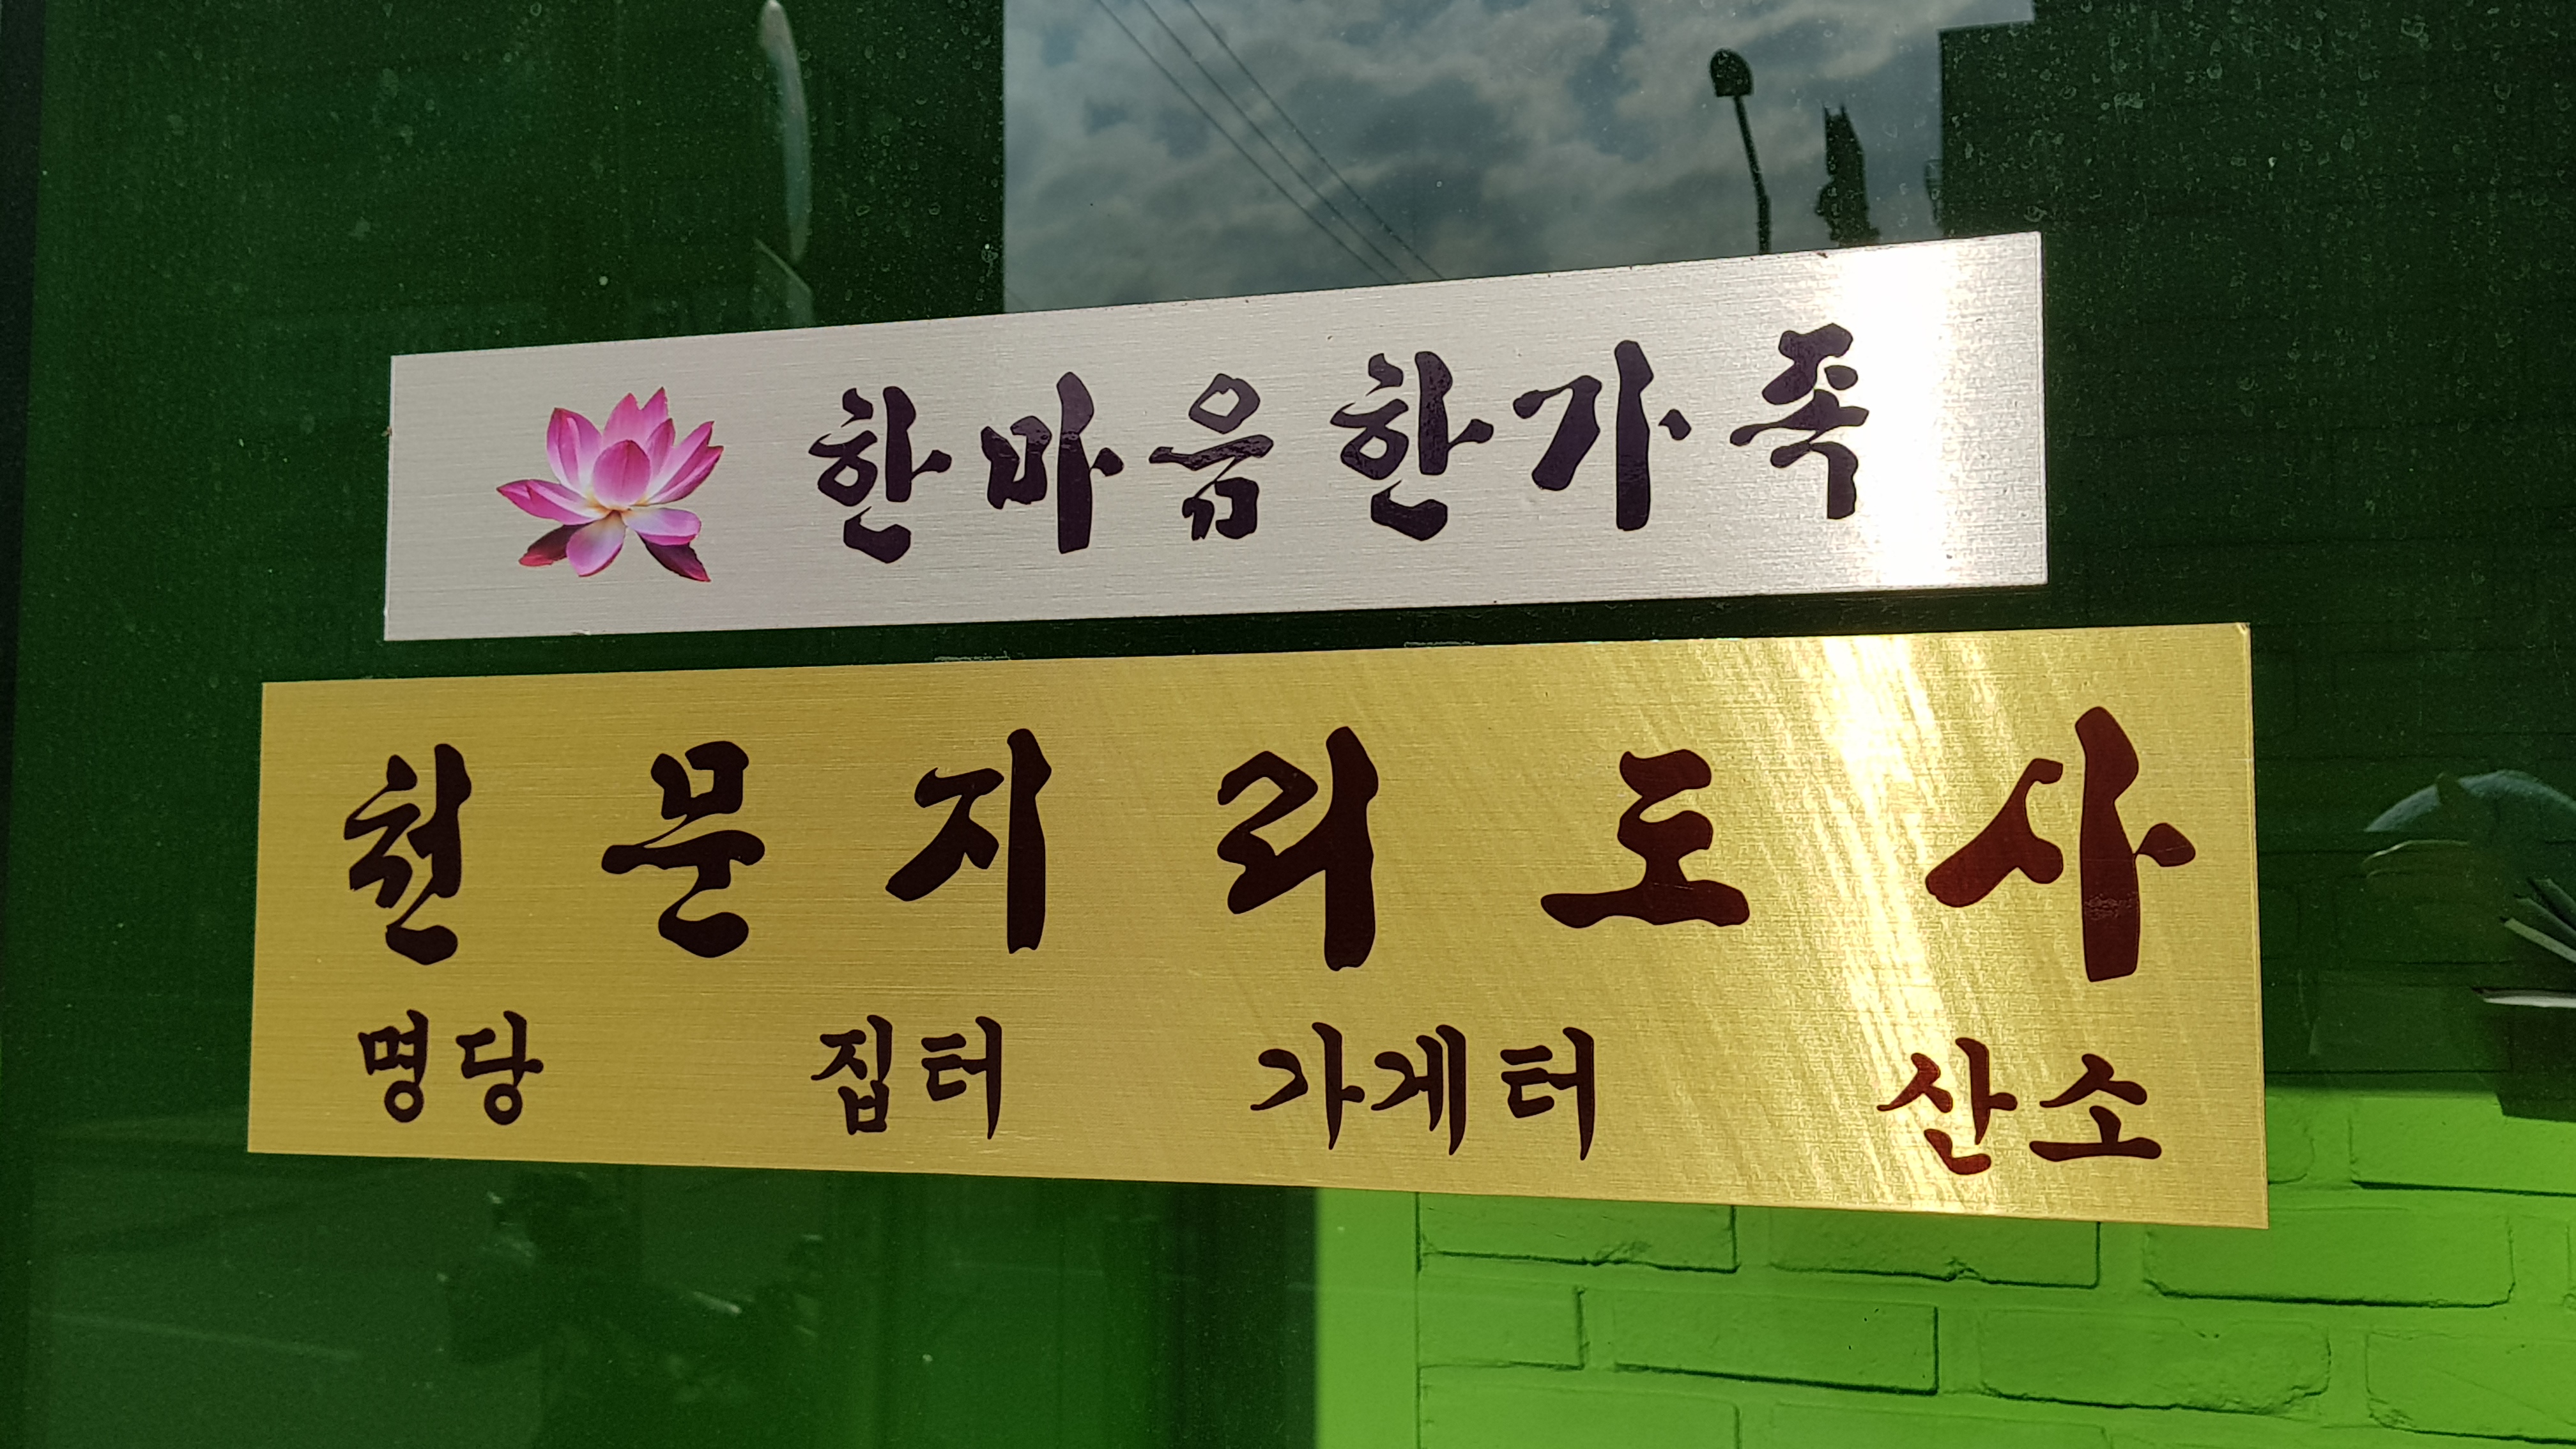 한마음한가족
천문지리도사
명당 집터 가게터 산소